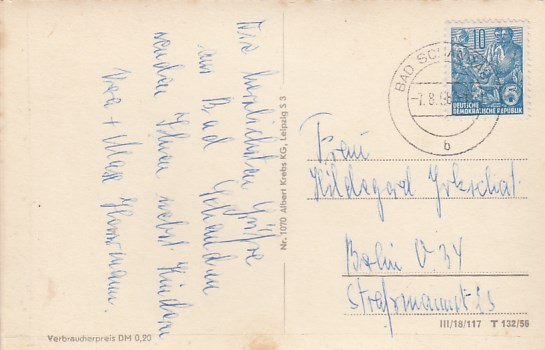 Die herzlichsten Grüße
aus Bad Schandau
senden Ihnen nebst Kindern
Max
Verbraucherpreis DM 0,20
Nr. 1070 Albert Krebs KG, Leipzig S 3
10
5
DEUTSCHE
DEMOKRATISCHE REPUBLIK
BAD SCHANDAU
b
Frau
Hildegard
Berlin O. 34
Straßmannstr
III/18/117 T 132/56